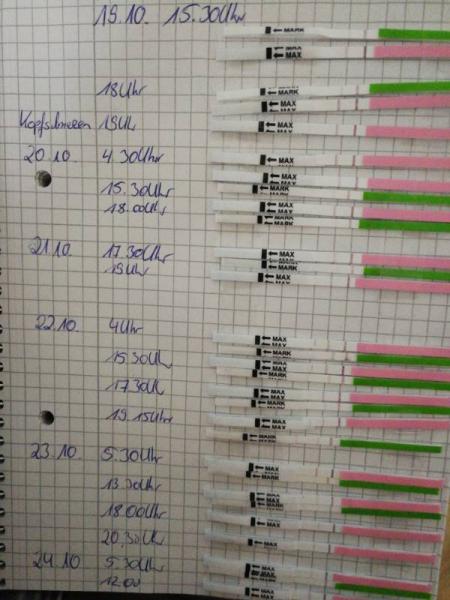 19.10. 15.30Uhr
MARK
MAX
18Uhr
MARK
MAX
Kopfschmerzen 19Uhr
MAX
20.10. 4.30Uhr
MAX
MAX
15.30Uhr
MARK
18.00Uhr
MAX
MARK
21.10. 17.30Uhr
MAX
19Uhr
MARK
MAX
22.10. 4Uhr
MAX
MAX
15.30Uhr
MARK
MAX
MARK
17.30Uhr
MAX
MARK
19.15Uhr
MAX
MARK
23.10 5.30Uhr
MAX
MARK
13.30Uhr
MAX
18.00Uhr
MAX
20.30Uhr
MAX
24.10 5.30Uhr
MAX
12.00
MAX